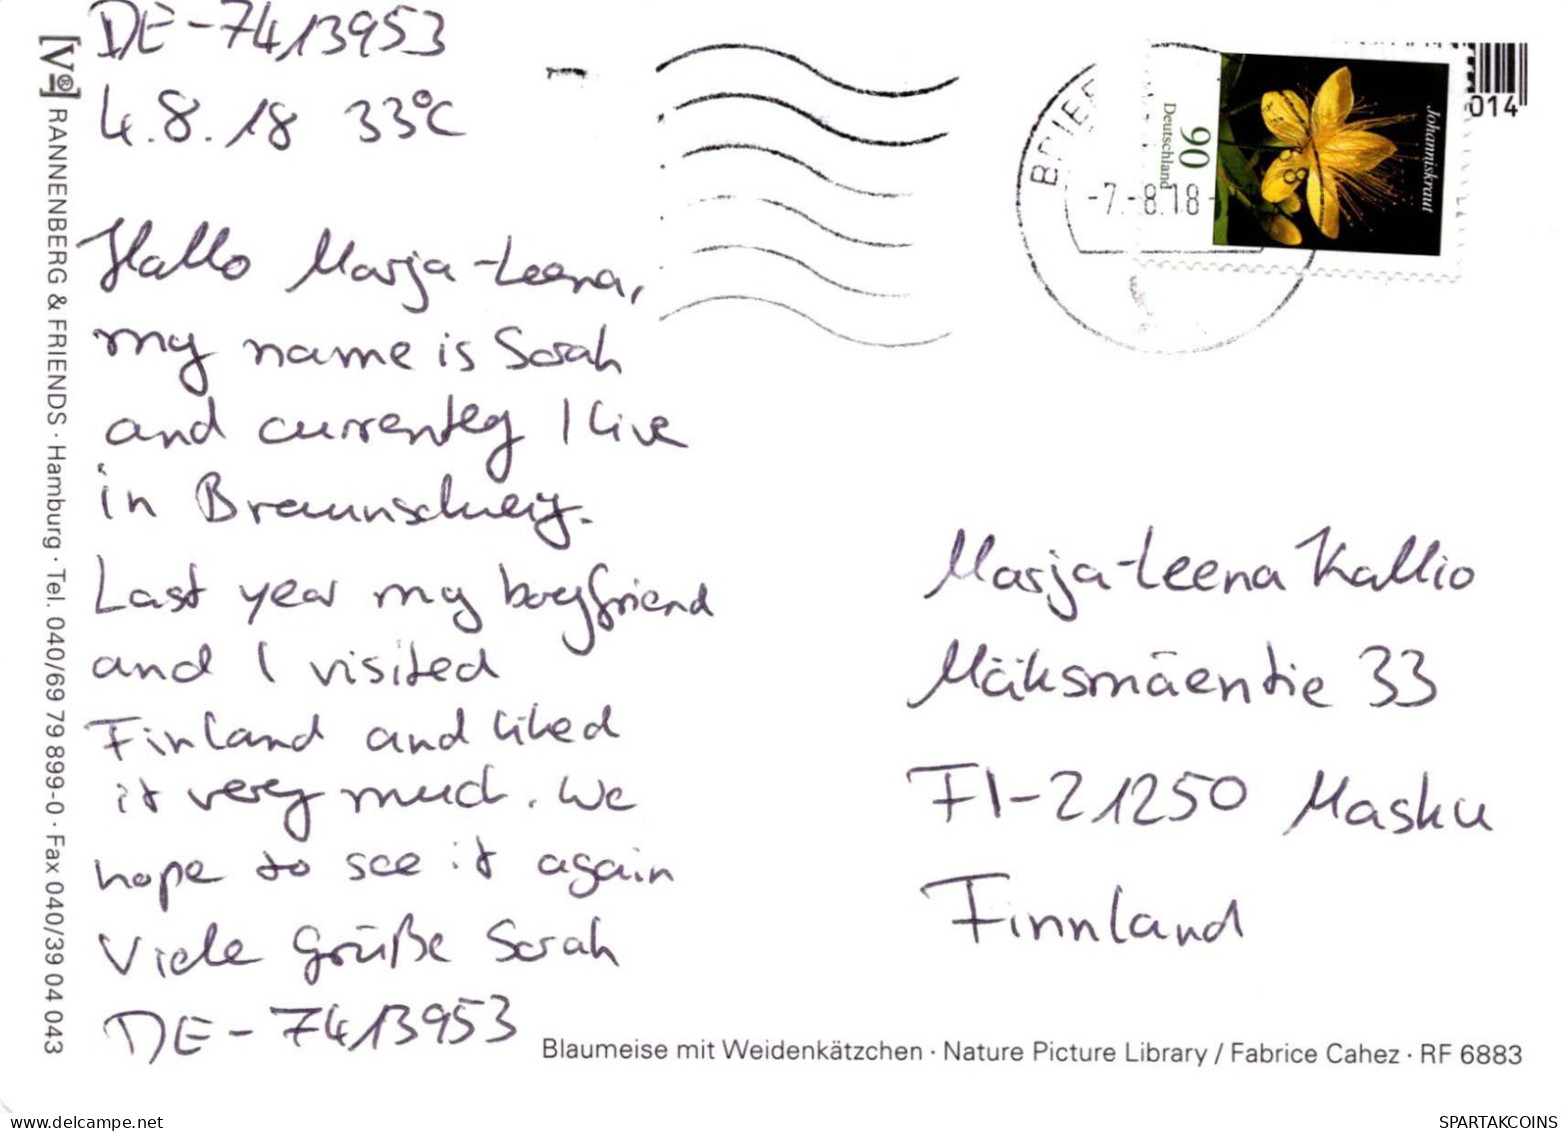 DE-7413953
4.8.18 33°C
Hallo Marja-Leena,
my name is Sarah
and currently I live
in Braunschweig.
Last year my boyfriend
and I visited
Finland and liked
it very much. We
hope to see it again
Viele Grüße Sarah
DE-7413953
Marja-Leena Kallio
Mäksmäentie 33
FI-21250 Masku
Finnland
[V®] RANNENBERG & FRIENDS · Hamburg · Tel. 040/69 79 899-0 · Fax 040/39 04 043
BRIEF
-7.-8.18-
90
Deutschland
Johanniskraut
014
Blaumeise mit Weidenkätzchen · Nature Picture Library / Fabrice Cahez · RF 6883
www.delcampe.net
SPARTAKCOINS